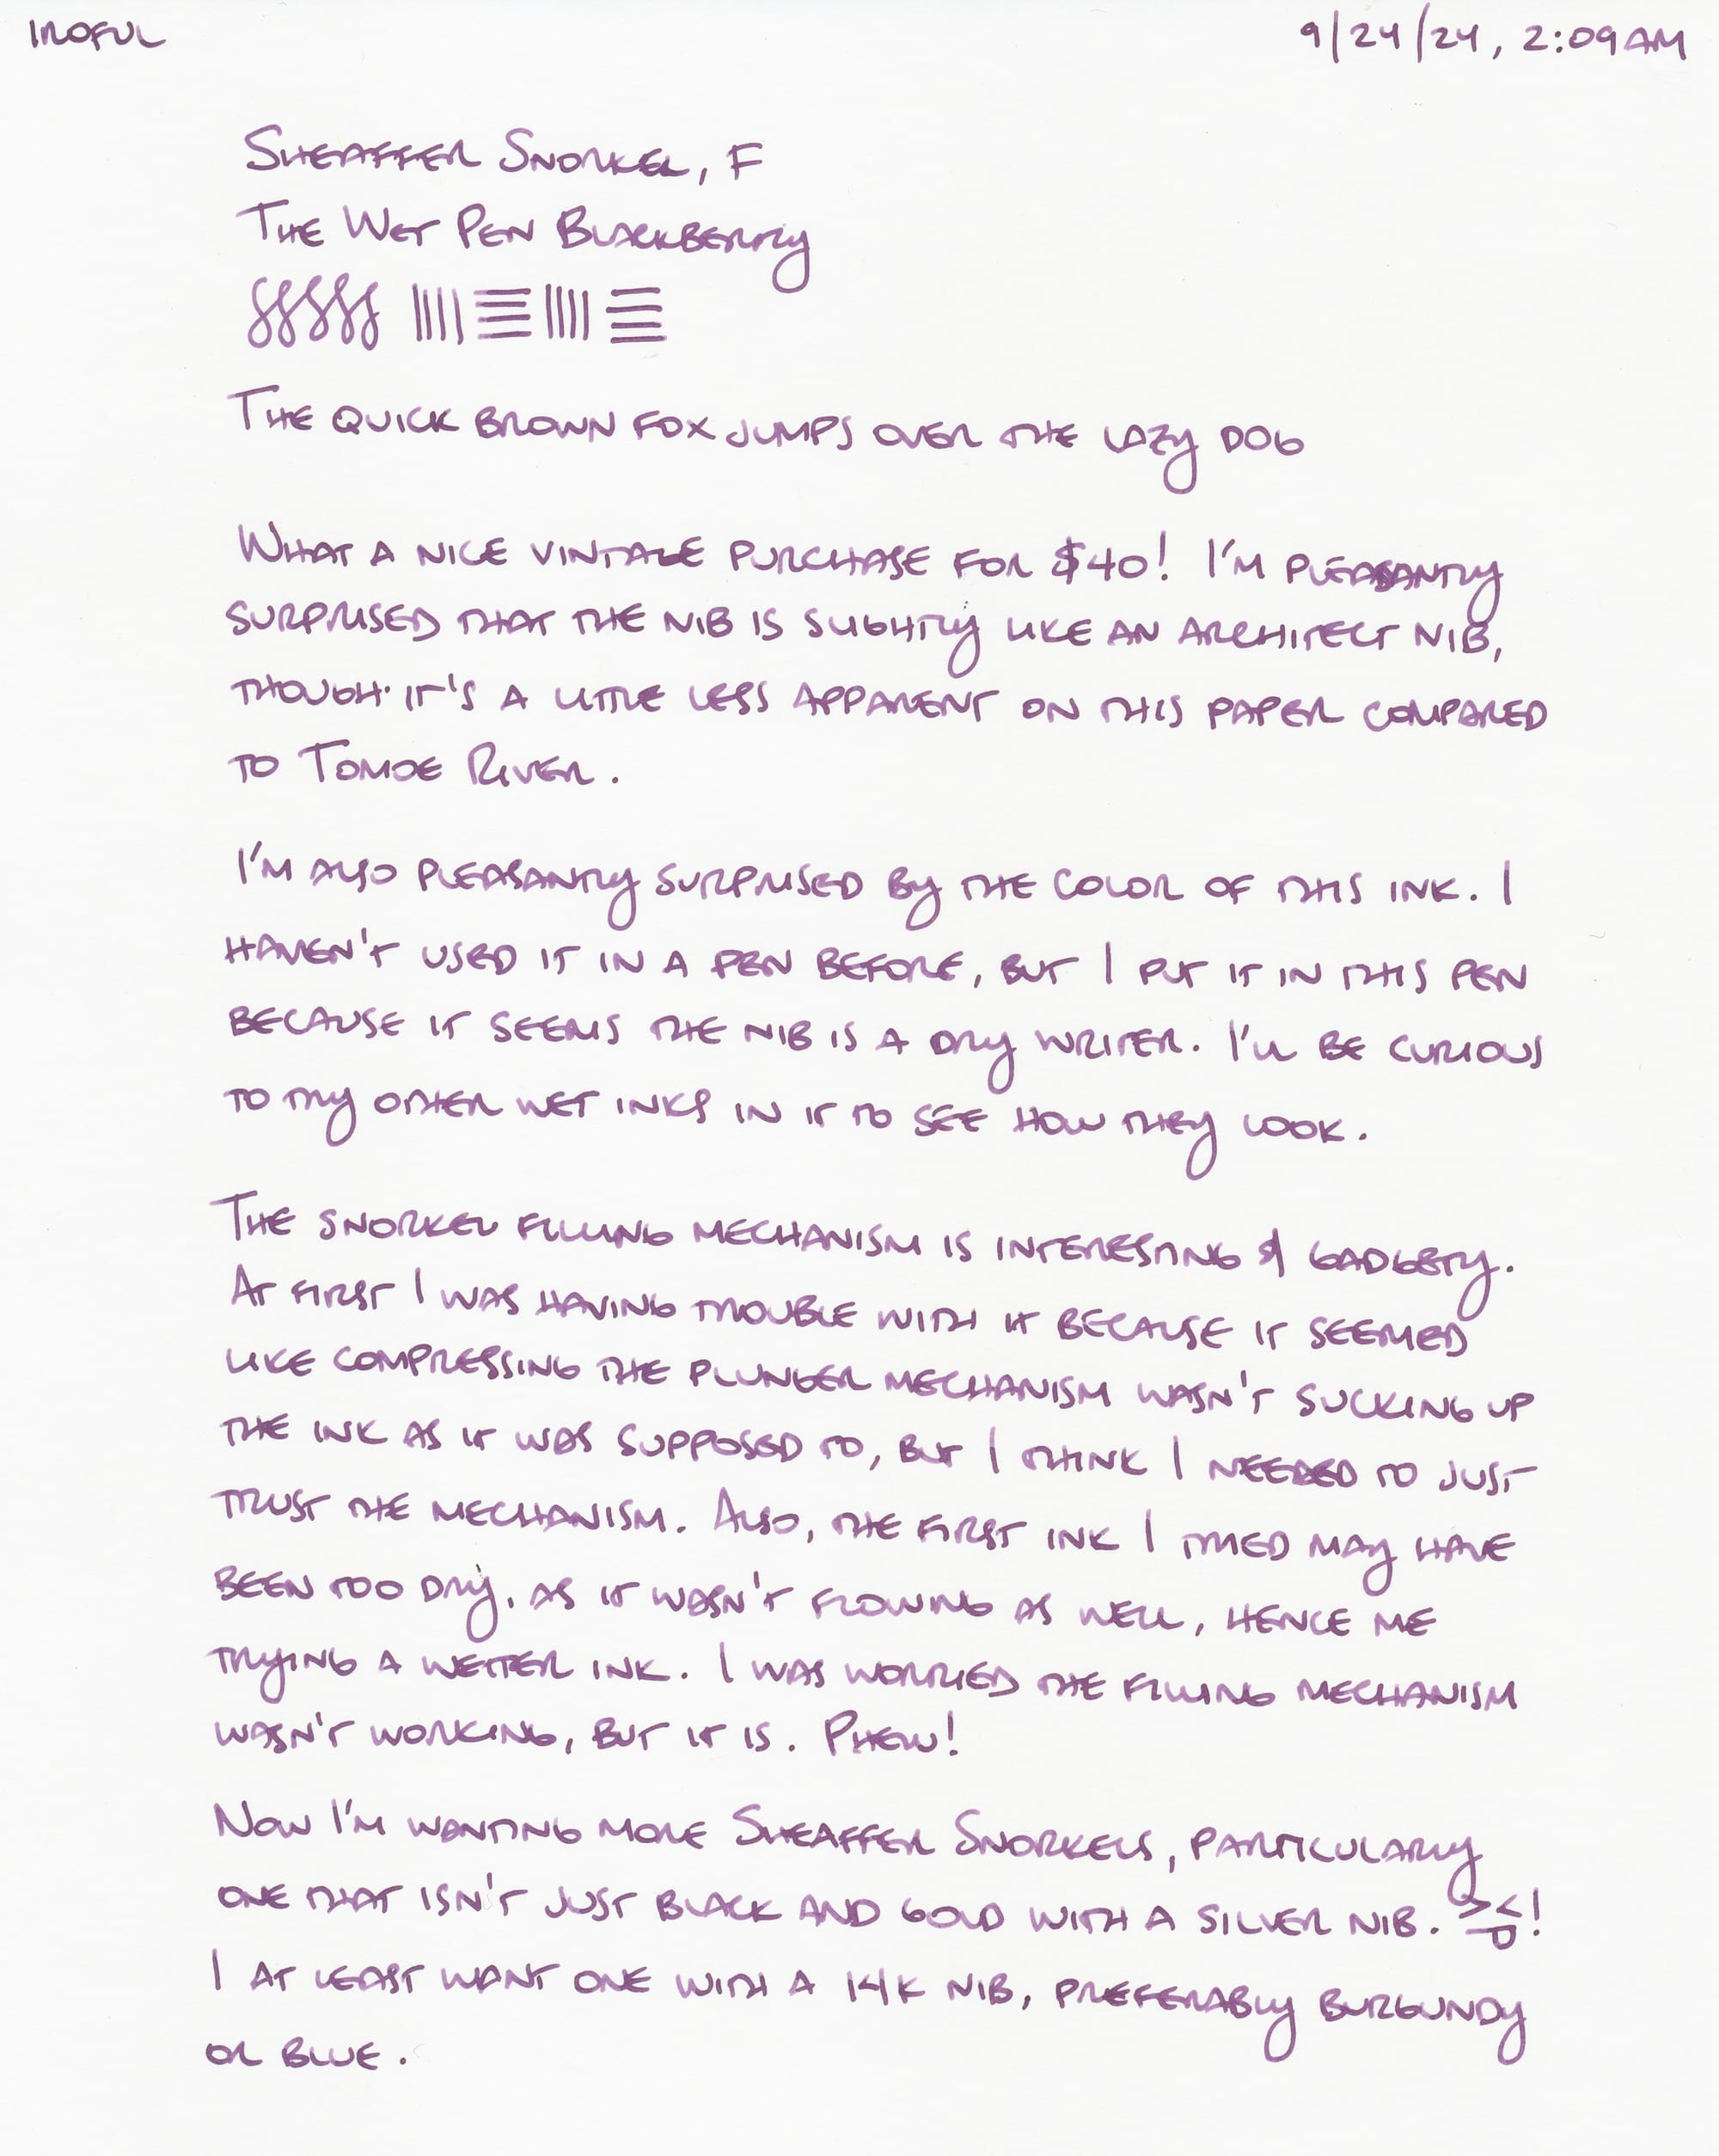 IROFUL
9/24/24, 2:09AM
SHEAFFER SNORKEL, F
THE WET PEN BLACKBERRY
THE QUICK BROWN FOX JUMPS OVER THE LAZY DOG
WHAT A NICE VINTAGE PURCHASE FOR $40! I'M PLEASANTLY
SURPRISED THAT THE NIB IS SLIGHTLY LIKE AN ARCHITECT NIB,
THOUGH IT'S A LITTLE LESS APPARENT ON THIS PAPER COMPARED
TO TOMOE RIVER.
I'M ALSO PLEASANTLY SURPRISED BY THE COLOR OF THIS INK. I
HAVEN'T USED IT IN A PEN BEFORE, BUT I PUT IT IN THIS PEN
BECAUSE IT SEEMS THE NIB IS A DRY WRITER. I'LL BE CURIOUS
TO TRY OTHER WET INKS IN IT TO SEE HOW THEY LOOK.
THE SNORKEL FILLING MECHANISM IS INTERESTING & GADGETY.
AT FIRST I WAS HAVING TROUBLE WITH IT BECAUSE IT SEEMED
LIKE COMPRESSING THE PLUNGER MECHANISM WASN'T SUCKING UP
THE INK AS IT WAS SUPPOSED TO, BUT I THINK I NEEDED TO JUST
TRUST THE MECHANISM. ALSO, THE FIRST INK I TRIED MAY HAVE
BEEN TOO DRY, AS IT WASN'T FLOWING AS WELL, HENCE ME
TRYING A WETTER INK. I WAS WORRIED THE FILLING MECHANISM
WASN'T WORKING, BUT IT IS. PHEW!
NOW I'M WANTING MORE SHEAFFER SNORKELS, PARTICULARLY
ONE THAT ISN'T JUST BLACK AND GOLD WITH A SILVER NIB. !
I AT LEAST WANT ONE WITH A 14K NIB, PREFERABLY BURGUNDY
OR BLUE.